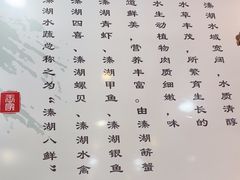 溱湖水域宽阔，水质清醇
水草丰茂，所繁育生长的
水生动植物肉质细嫩，味
道鲜美，营养丰富。由溱湖簖蟹
溱湖青虾、溱湖甲鱼、溱湖银鱼
溱湖四喜、溱湖螺贝、溱湖水禽
溱湖水蔬总称之为“溱湖八鲜”